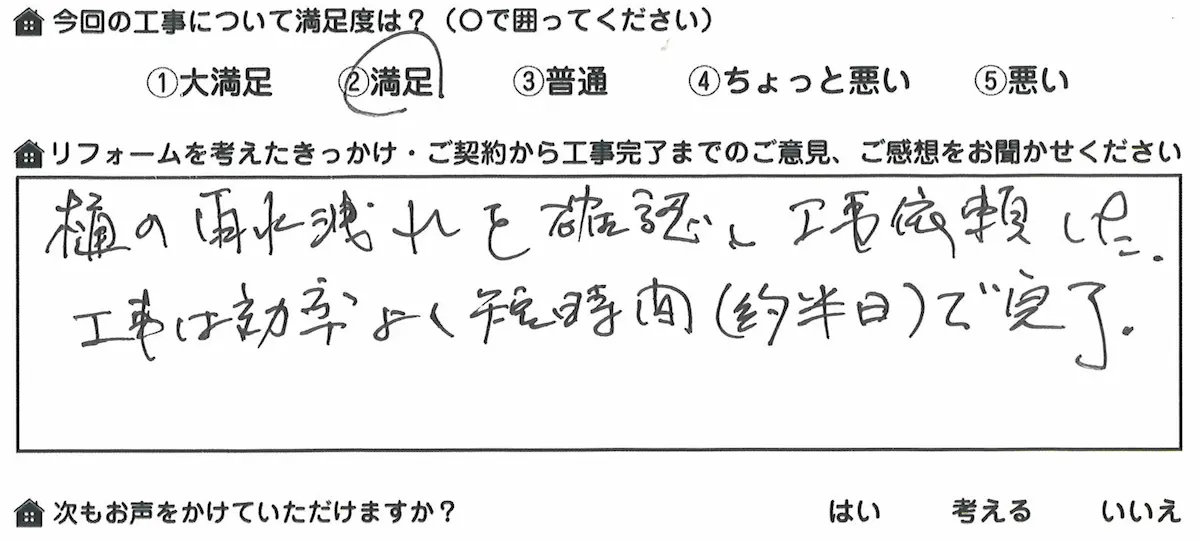 今回の工事について満足度は？（〇で囲ってください）
①大満足 ②満足 ③普通 ④ちょっと悪い ⑤悪い
リフォームを考えたきっかけ・ご契約から工事完了までのご意見、ご感想をお聞かせください
樋の雨水洩れを確認し工事依頼した.
工事は効率よく短時間(約半日)で完了.
次もお声をかけていただけますか？ はい 考える いいえ